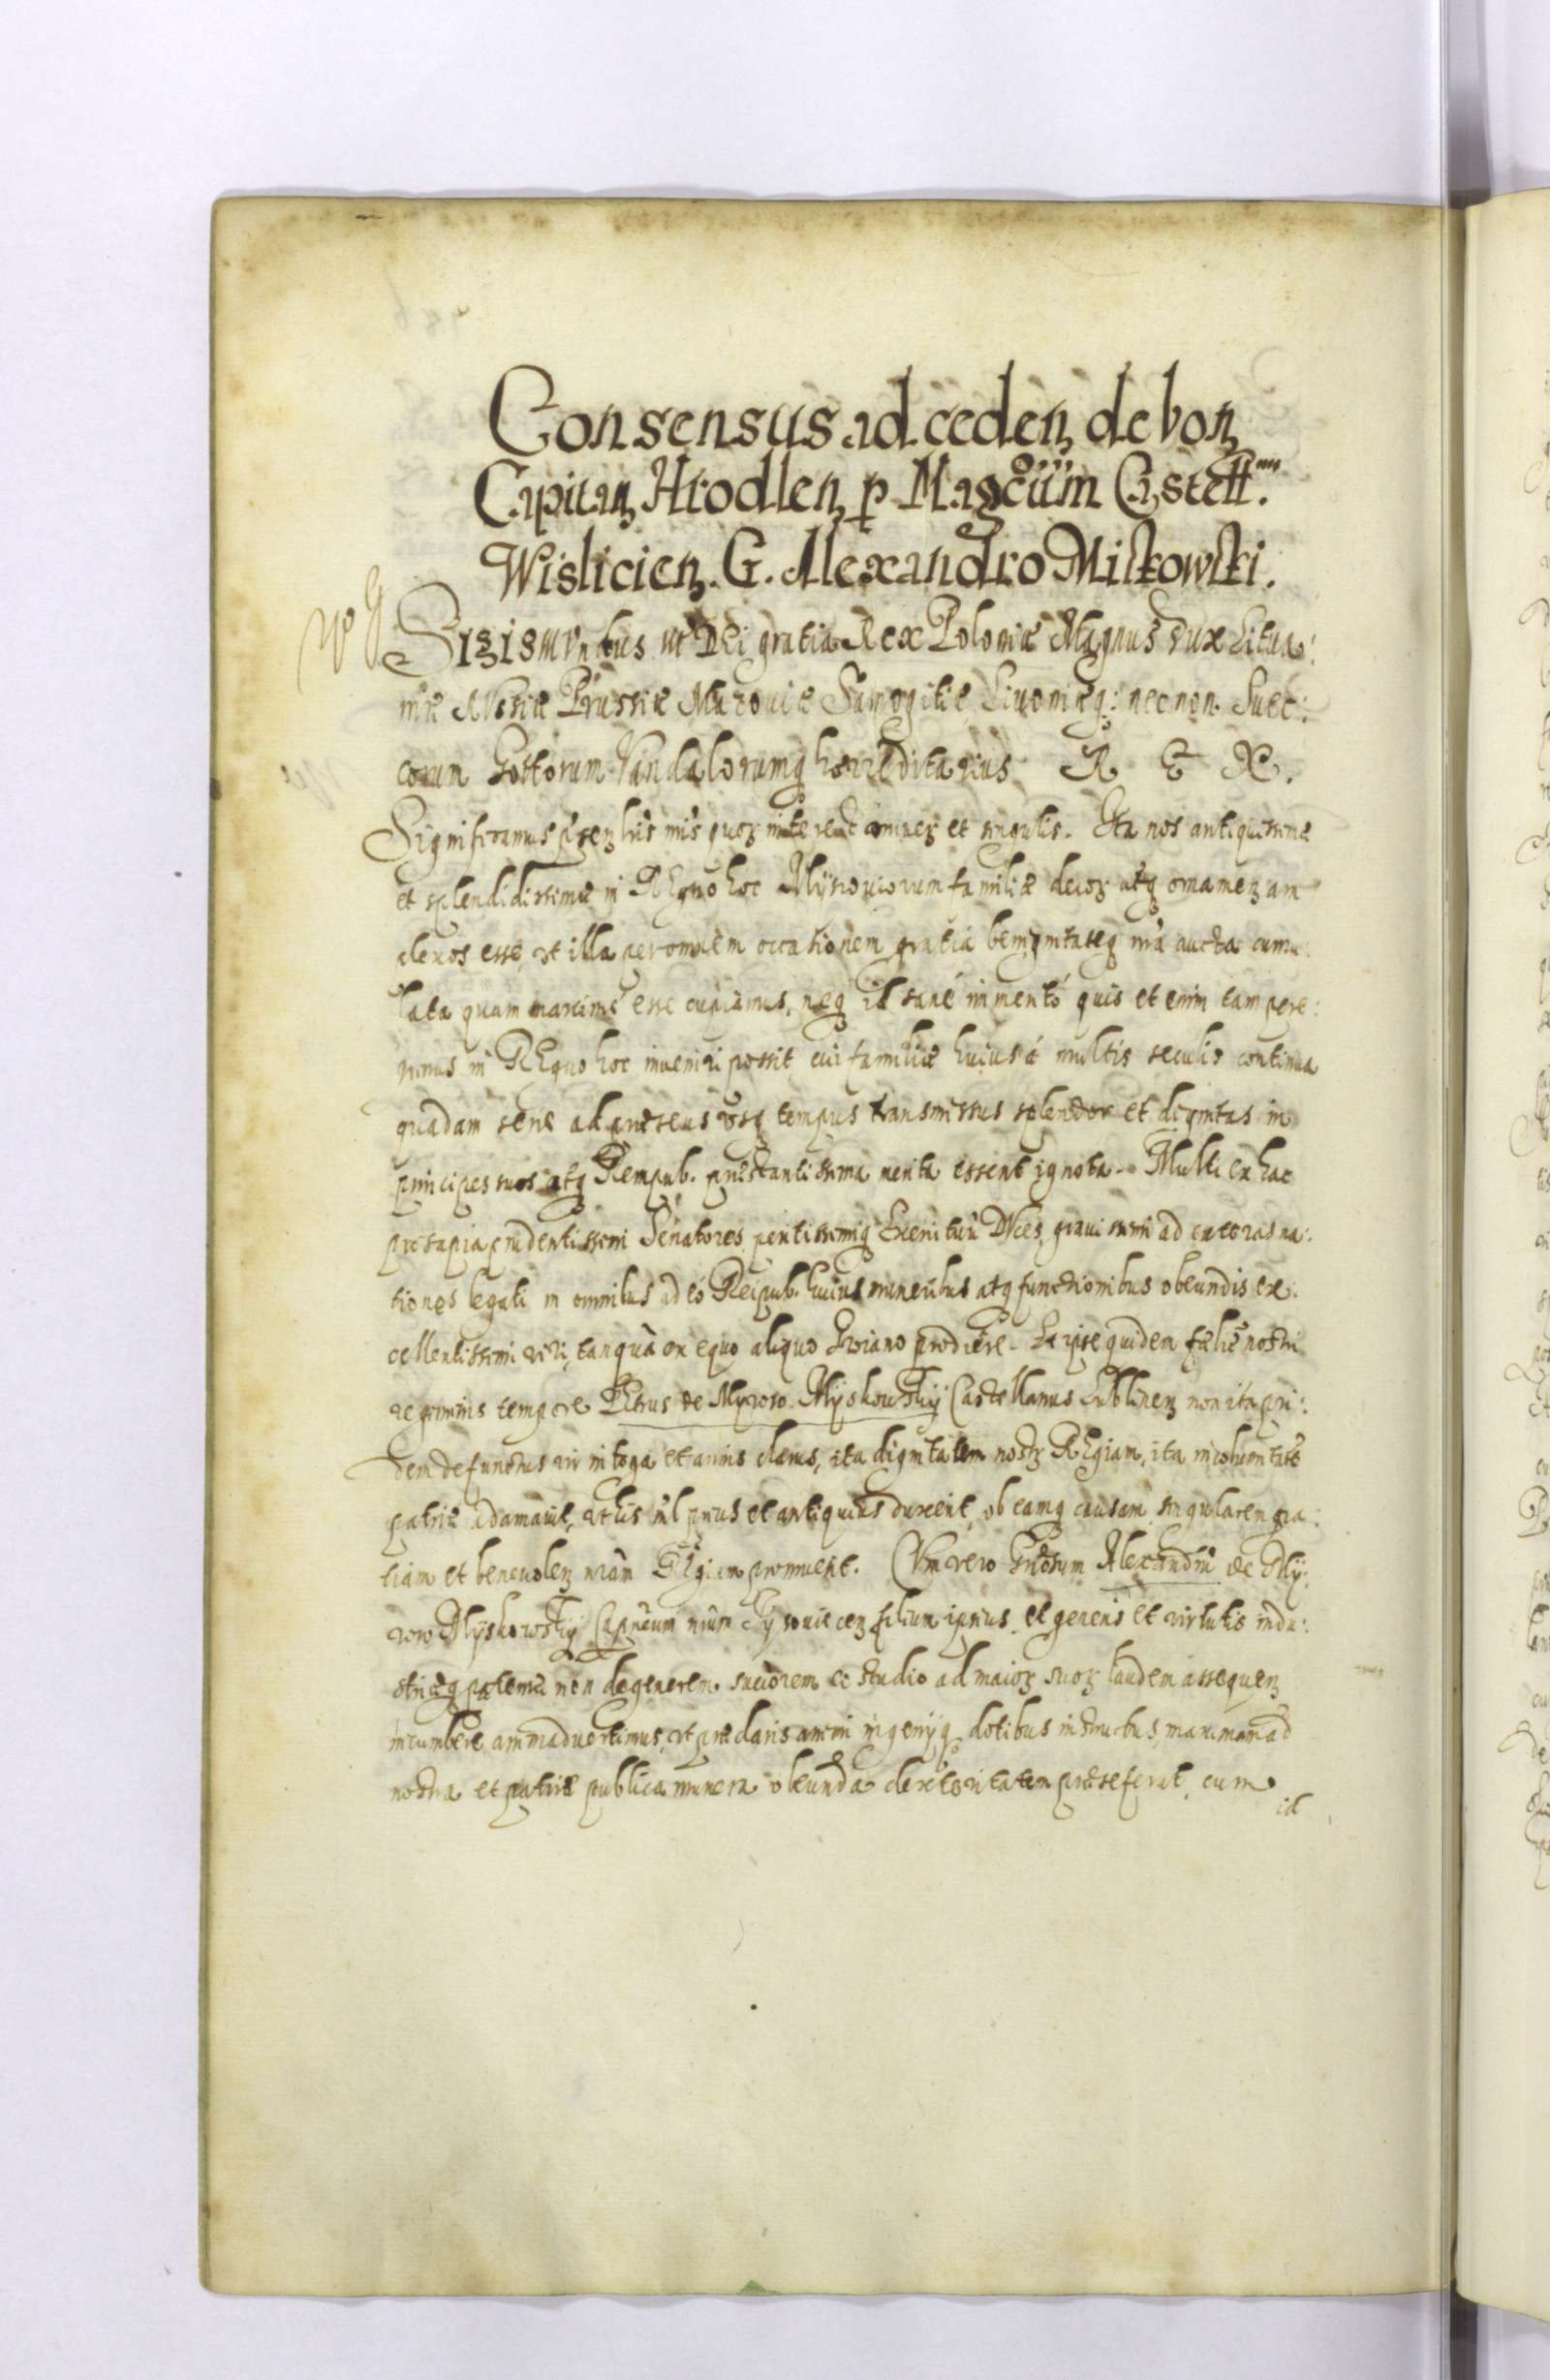 Consensus ad ceden de bon
Capitan Hrodlen p Magcum Castell.
Wislicien. G. Alexandro Miskowski.
Sigismundus III Dei gratia Rex Poloniæ Magnus Dux Litua:
niæ Russiæ Prussiæ Mazouiæ Samogitiæ Liuoniæq: necnon Suec:
corum Gottorum Vandalorumq hærreditarius R E X.
Significamus pnsen lris nris quor interest omnes et singulis. Ita nos antiquissimæ
et splendidissimæ in REgno hoc Myscouiorum familiæ decus atq ornamen am
plexos esse, vt illa per omnem occasionem gratia benignitateq nra aucta cumu:
lata quam maximè esse cupiamus, neq id sanè immeritò quis et enim tam pere:
grinus in REgno hoc inueniri possit cui familiæ huius à multis seculis continua
quadam serie ad præsens vsq tempus transmissus splendor et dignitas in
principes suos atq Rempub. præstantissima merita essent ignota. Multi ex hac
prosapia prudentissimi Senatores, peritissimiq Exercituũ DVces, grauissimi ad exteras na:
tiones legati in omnibus adeò Reipub. huius muneribus atq functionibus obeundis ex:
cellentissimi viri, tanquã ex equo aliquo Troiano prodiêre. Et ipse quidem fælicis nostri
regiminis tempore PEtrus de Myrow Myskowskij Castellanus Lublinen non ita pri:
dem defunctus vir in toga et armis clarus, ita dignitatem nostr REgiam, ita incolumitatẽ
patriæ adamauit, vt his nil prius et antiquius duxerit, ob eamq causam singularem gra:
tiam et beneuolen nram REgiam promeruerit. CVm vero Gnosum Alexandrũ de My:
row Myskowskij Capneum nrum filium ipsius, et generis et virtutis indu:
striæq paternæ non degenerem suciorem eo studio ad maior suor laudem assequen
incumbere animaduertimus, vt præclaris animi ingenijq dotibus instructus, maximam ad
nostra et patriæ publica munera obeunda dexteritatem præseferat, cum
id